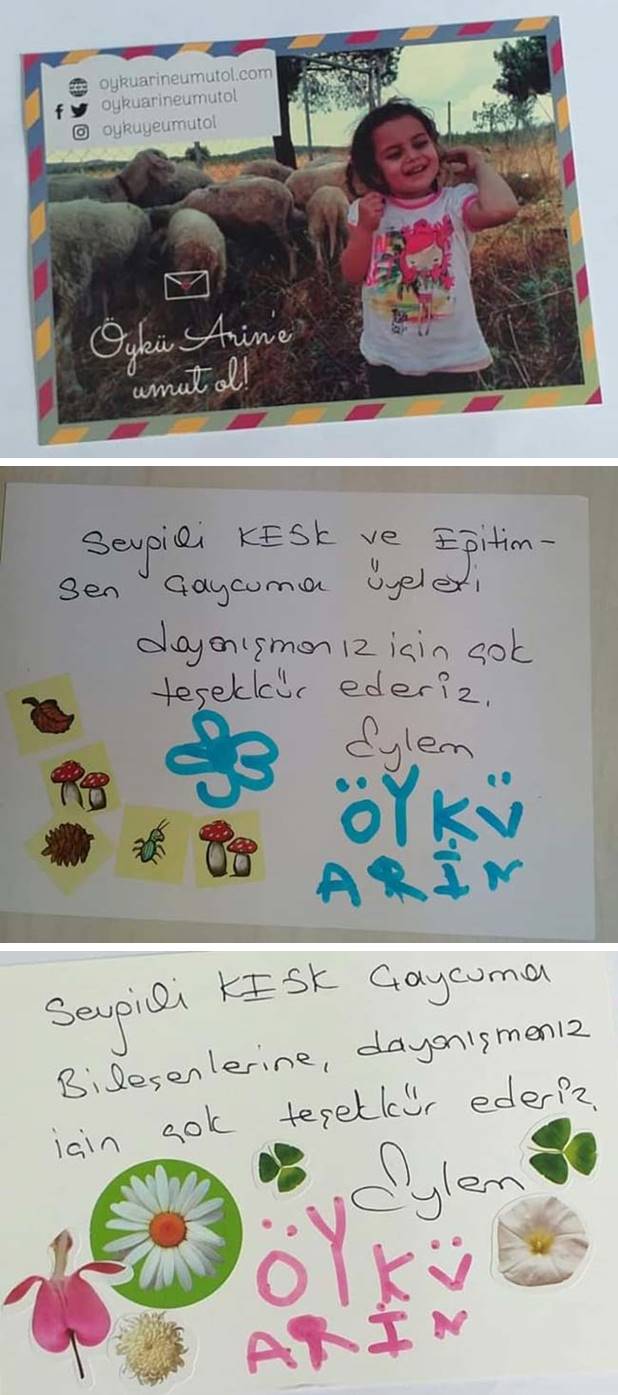 oykuarineumutol.com
oykuarineumutol
oykuyeumutol
Öykü Arin'e
umut ol!
Sevgili KESK ve Eğitim-
Sen Çaycuma üyeleri
dayanışmanız için çok
teşekkür ederiz.
Eylem
ÖYKÜ
ARİN
Sevgili KESK Çaycuma
Bileşenlerine, dayanışmanız
için çok teşekkür ederiz.
Eylem
ÖYKÜ
ARİN